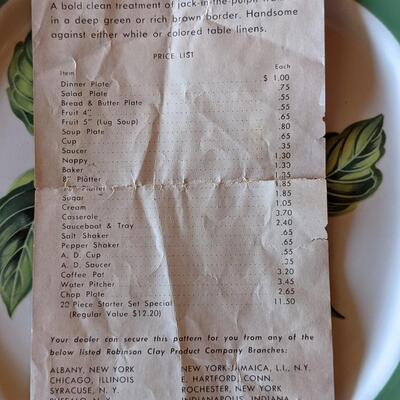 A bold clean treatment of jack-in-the-pulpit
in a deep green or rich brown border. Handsome
against either white or colored table linens.
PRICE LIST
Item Each
Dinner Plate $ 1.00
Salad Plate .75
Bread & Butter Plate .55
Fruit 4" .55
Fruit 5" (Lug Soup) .65
Soup Plate .80
Cup .65
Saucer .35
Nappy 1.30
Baker 1.30
8" Platter 1.35
Platter 1.85
Sugar 1.85
Cream 1.05
Casserole 3.70
Sauceboat & Tray 2.40
Salt Shaker .65
Pepper Shaker .65
A. D. Cup .55
A. D. Saucer .35
Coffee Pot 3.20
Water Pitcher 3.45
Chop Plate 2.65
20 Piece Starter Set Special 11.50
(Regular Value $12.20)
Your dealer can secure this pattern for you from any of
the below listed Robinson Clay Product Company Branches:
ALBANY, NEW YORK NEW YORK-JAMAICA, L.I., N.Y.
CHICAGO, ILLINOIS E. HARTFORD, CONN.
SYRACUSE, N. Y. ROCHESTER, NEW YORK
BUFFALO, N. Y. INDIANAPOLIS, INDIANA